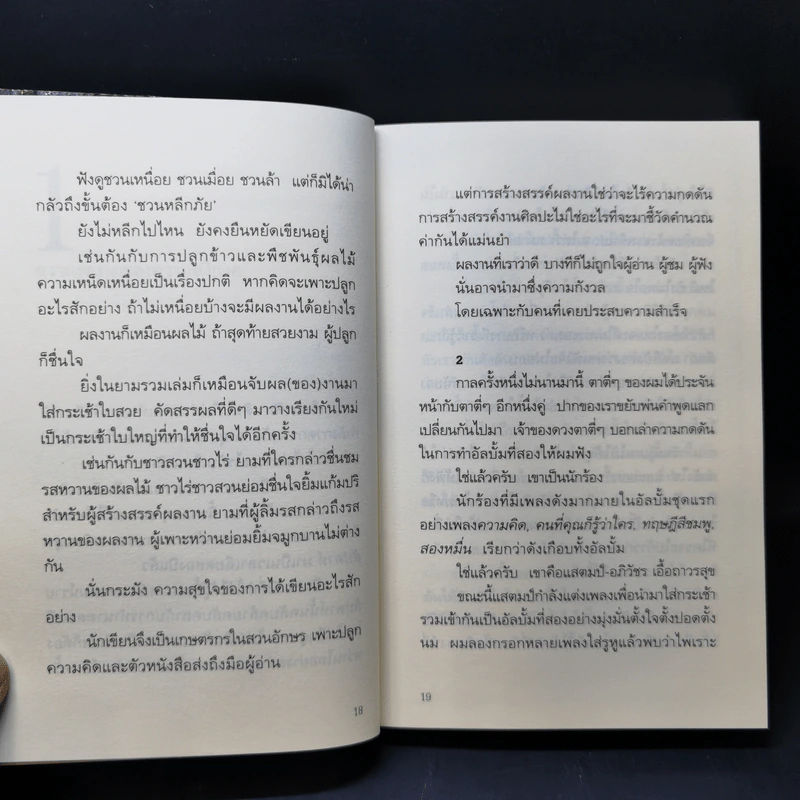 ฟังดูชวนเหนื่อย ชวนเมื่อย ชวนล้า แต่ก็มิได้น่า
กลัวถึงขั้นต้อง ‘ชวนหลีกภัย’
ยังไม่หลีกไปไหน ยังคงยืนหยัดเขียนอยู่
เช่นกันกับการปลูกข้าวและพืชพันธุ์ผลไม้
ความเหน็ดเหนื่อยเป็นเรื่องปกติ หากคิดจะเพาะปลูก
อะไรสักอย่าง ถ้าไม่เหนื่อยบ้างจะมีผลงานได้อย่างไร
ผลงานก็เหมือนผลไม้ ถ้าสุดท้ายสวยงาม ผู้ปลูก
ก็ชื่นใจ
ยิ่งในยามรวมเล่มก็เหมือนจับผล(ของ)งานมา
ใส่กระเช้าใบสวย คัดสรรผลที่ดีๆ มาวางเรียงกันใหม่
เป็นกระเช้าใบใหญ่ที่ทำให้ชื่นใจได้อีกครั้ง
เช่นกันกับชาวสวนชาวไร่ ยามที่ใครกล่าวชื่นชม
รสหวานของผลไม้ ชาวไร่ชาวสวนย่อมชื่นใจยิ้มแก้มปริ
สำหรับผู้สร้างสรรค์ผลงาน ยามที่ผู้ลิ้มรสกล่าวถึงรส
หวานของผลงาน ผู้เพาะหว่านย่อมยิ้มจมูกบานไม่ต่าง
กัน
นั่นกระมัง ความสุขใจของการได้เขียนอะไรสัก
อย่าง
นักเขียนจึงเป็นเกษตรกรในสวนอักษร เพาะปลูก
ความคิดและตัวหนังสือส่งถึงมือผู้อ่าน
18
แต่การสร้างสรรค์ผลงานใช่ว่าจะไร้ความกดดัน
การสร้างสรรค์งานศิลปะไม่ใช่อะไรที่จะมาชี้วัดคำนวณ
ค่ากันได้แม่นยำ
ผลงานที่เราว่าดี บางทีก็ไม่ถูกใจผู้อ่าน ผู้ชม ผู้ฟัง
นั่นอาจนำมาซึ่งความกังวล
โดยเฉพาะกับคนที่เคยประสบความสำเร็จ
2
กาลครั้งหนึ่งไม่นานมานี้ ตาตี่ๆ ของผมได้ประจัน
หน้ากับตาตี่ๆ อีกหนึ่งคู่ ปากของเราขยับพ่นคำพูดแลก
เปลี่ยนกันไปมา เจ้าของดวงตาตี่ๆ บอกเล่าความกดดัน
ในการทำอัลบั้มที่สองให้ผมฟัง
ใช่แล้วครับ เขาเป็นนักร้อง
นักร้องที่มีเพลงดังมากมายในอัลบั้มชุดแรก
อย่างเพลงความคิด, คนที่คุณก็รู้ว่าใคร, ทฤษฎีสีชมพู,
สองหมื่น เรียกว่าดังเกือบทั้งอัลบั้ม
ใช่แล้วครับ เขาคือแสตมป์-อภิวัชร เอื้อถาวรสุข
ขณะนี้แสตมป์กำลังแต่งเพลงเพื่อนำมาใส่กระเช้า
รวมเข้ากันเป็นอัลบั้มที่สองอย่างมุ่งมั่นตั้งใจตั้งปอดตั้ง
นม ผมลองกรอกหลายเพลงใส่รูหูแล้วพบว่าไพเราะ
19